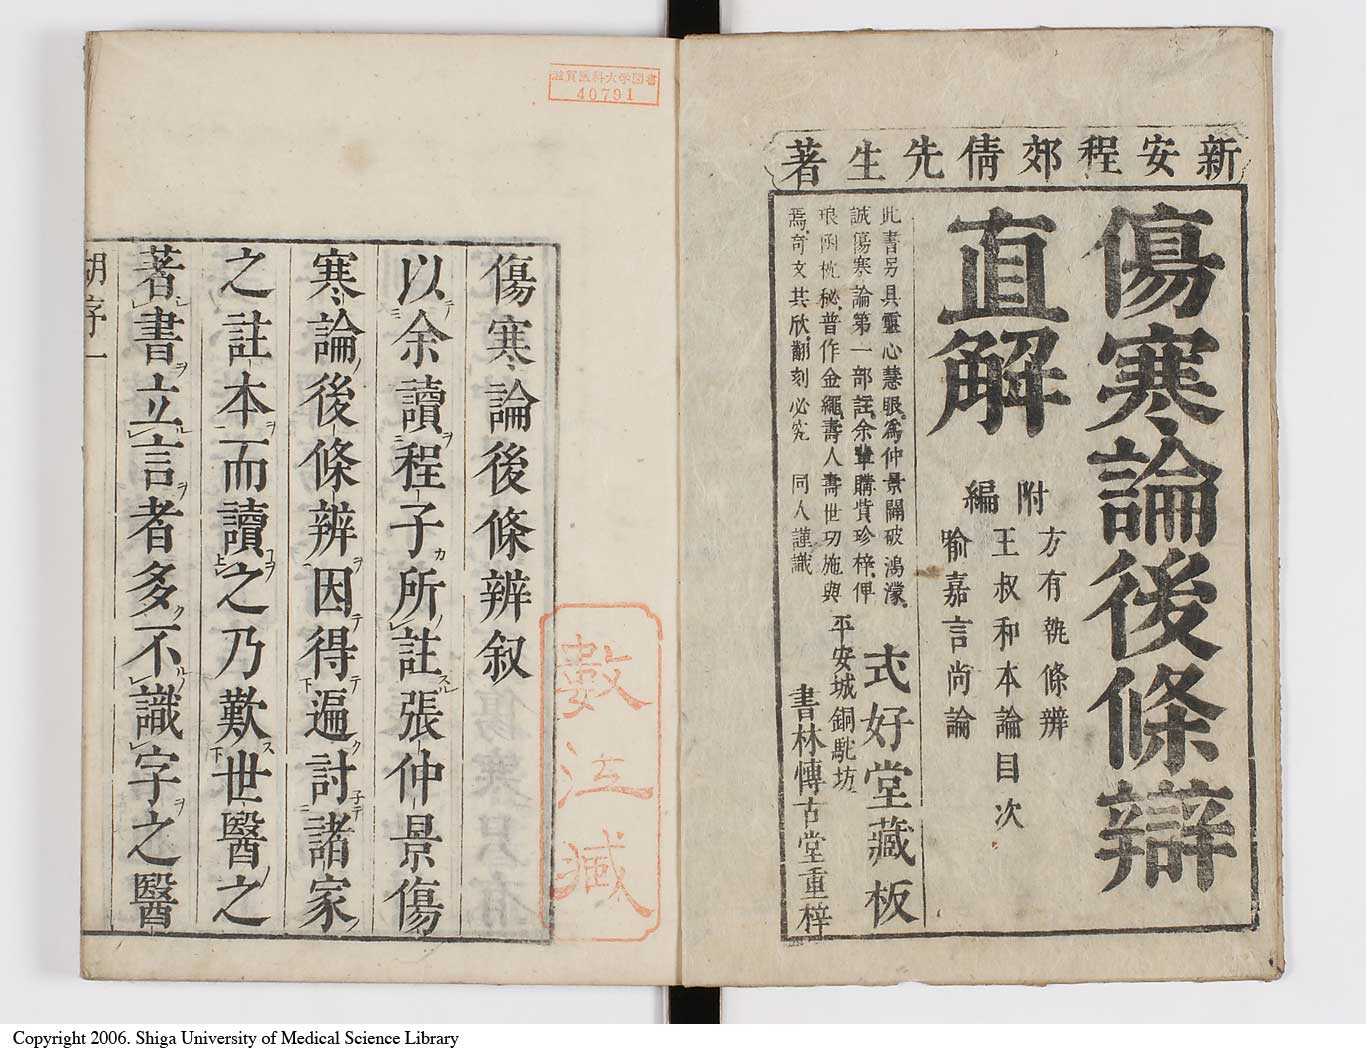 新安程郊倩先生著
傷寒論後條辯
直解
附編
方有執條辨
王叔和本論目次
喻嘉言尚論
此書另具靈心慧眼爲仲景闢破鴻濛
誠傷寒論第一部註余輩購貲珍梓俾
琅函枕秘普作金繩壽人壽世功施與
焉奇文共欣翻刻必究 同人謹識
式好堂藏板
平安城銅駝坊
書林博古堂重梓
滋賀医科大学図書
40791
傷寒論後條辨叙
以余讀程子所註張仲景傷
寒論後條辨因得遍討諸家
之註本而讀之乃歎世醫之
著書立言者多不識字之醫
胡序一
Copyright 2006. Shiga University of Medical Science Library